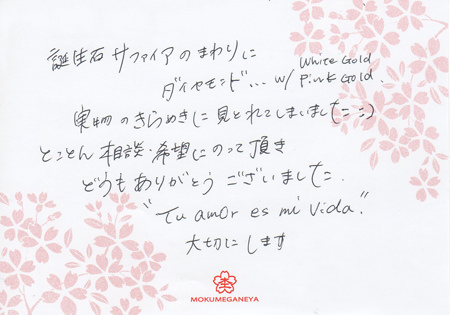 誕生石 サファイアのまわりに
ダイヤモンド... w/ White Gold
Pink Gold.
実物のきらめきに見とれてしまいました :)
とことん相談・希望にのって頂き
どうもありがとうございました.
"Tu amor es mi vida."
大切にします
MOKUMEGANEYA